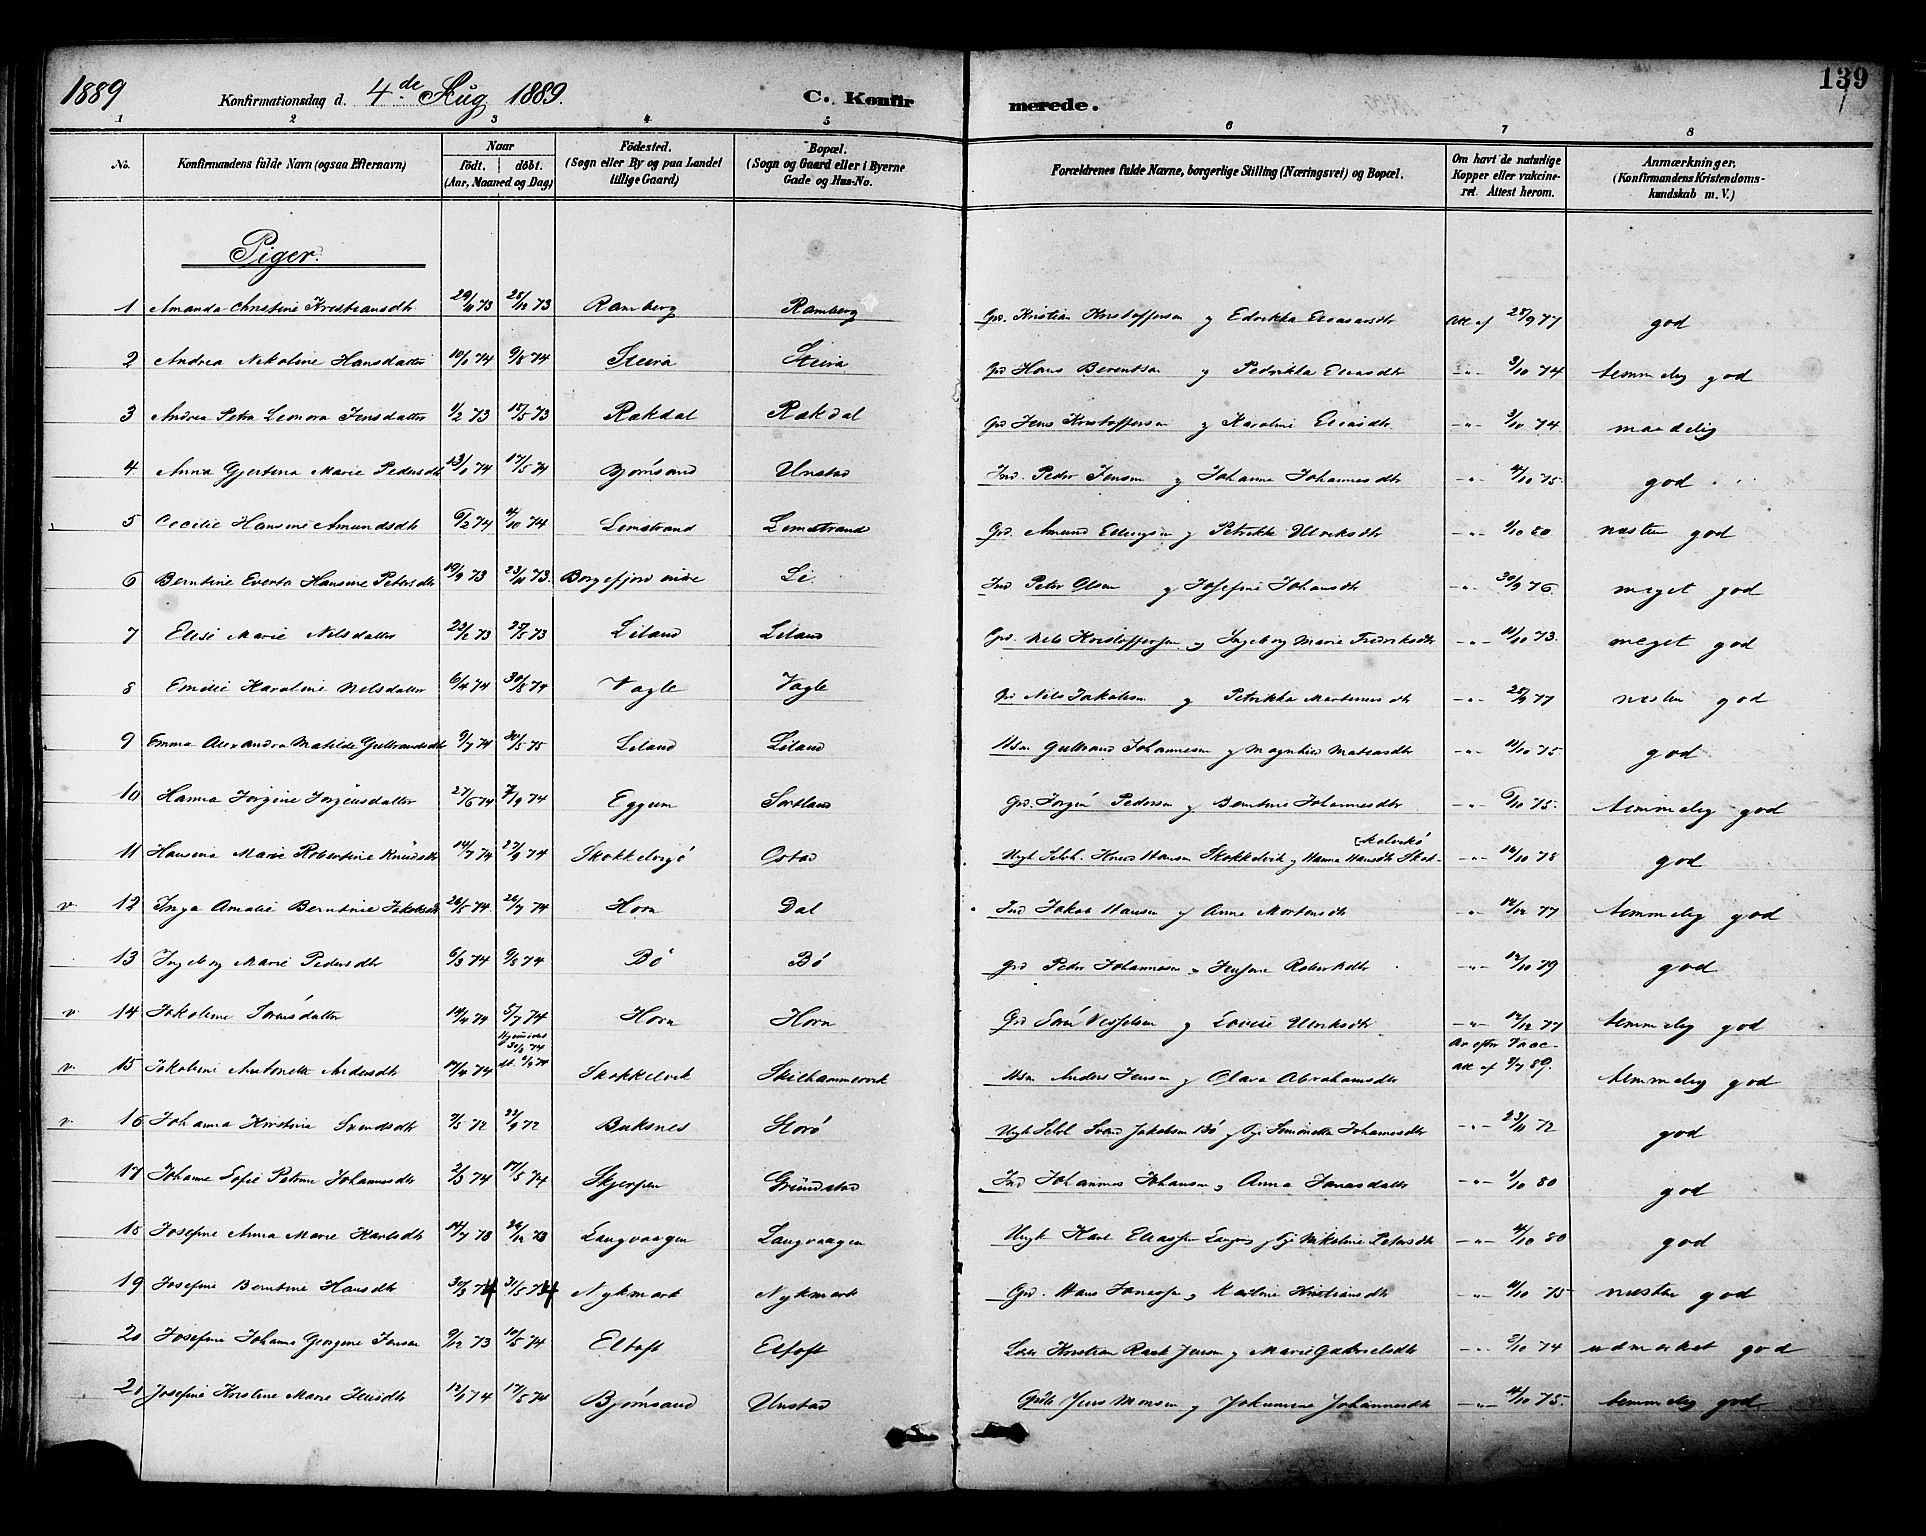 1889 Konfirmationsdag d. 4de Aug 1889. C. Konfirmerede. 139
1 2 3 4 5 6 7 8
No. Konfirmandens fulde Navn (ogsaa Efternavn) Naar født. døbt. (Aar, Maaned og Dag) Födested. (Sogn eller By og paa Landet tillige Gaard) Bopæl. (Sogn og Gaard eller i Byerne Gade og Hus-No. Forældrenes fulde Navne, borgerlige Stilling (Næringsvei) og Bopæl. Om havt de naturlige Kopper eller vakcineret. Attest herom. Anmærkninger. (Konfirmandens Kristendomskundskab m. V.)
Piger.
1 Amanda Christine Kristiansdtr 29/11 73 28/12 73 Ramberg Ramberg Grd. Kristian Kristoffersen og Edrikka Eliasdtr Att af 28/9 77 god
2 Andrea Nikoline Hansdatter 10/1 74 9/8 74 Steira Steira Grd Hans Berentsen og Petrikka Eliasdtr -"- 3/10 74 temmelig god
3 Andrea Petra Leonora Jensdatter 1/2 73 15/5 73 Rakdal Rakdal Grd Jens Kristoffersen og Karoline Eliasdtr -"- 3/10 74 maadelig
4 Anna Gjertina Marie Pedersdtr 13/1 74 17/5 74 Bjørnsand Unstad Ind. Peder Jensen og Johanna Johannesdtr -"- 4/10 75 god
5 Cecilie Hansine Amundsdtr 6/2 74 4/10 74 Limstrand Limstrand Grd. Amund Ellingsen og Petrikke Ulriksdtr -"- 1/10 80 næsten god
6 Berntine Everta Hansine Petersdtr 19/9 73 23/11 73. Borgefjord indre Li Ind Peter Olsen og Josefine Johansdtr -"- 30/9 76. meget god
7 Elise Marie Nilsdatter 23/2 73 25/5 73 Liland Liland Grd. Nils Kristoffersen og Ingeborg Marie Fredriksdtr -"- 10/10 73. meget god
8 Emilie Karoline Nilsdatter 6/4 74 30/8 74 Vagle Vagle Grd Nils Jakobsen og Petrikka Martinusdtr -"- 28/9 77 næsten god
9 Emma Alexandra Matilde Gulbrandsdtr 9/7 74 30/5 75 Liland Liland Hsm Gulbrand Johannesen og Magnhild Matiasdtr -"- 11/10 75 god
10 Hanna Jørgine Jørgensdatter 27/6 74 7/9 74 Eggum Sortland Grd. Jørgen Pedersen og Berntine Johannesdtr -"- 5/10 75. temmelig god
11 Hansina Marie Robertine Knudsdtr 14/7 74 27/9 74 Skokkelvigø Ostad Ungk Selvb. Knud Hansen Skokkelvik og Hanna Hansdtr Skokelvikø -"- 14/10 78 god
v. 12 Inga Amalie Berntine Jakobsdtr 26/5 74. 26/7 74 Horn Dal Ind Jakob Hansen og Anne Mortensdtr -"- 14/12 77 temmelig god
13 Ingeborg Marie Pedersdtr 6/3 74 9/8 74 Bø Bø Grd Peder Johannesen og Jensine Robertsdtr -"- 14/10 79 god
v. 14 Jakobine Sørensdatter 14/4 74 5/7 74 Horn Horn Grd Søren Vesselsen og Lovise Ulriksdtr -"- 14/12 77 temmelig god
v. 15 Jakobine Antonette Andersdtr 17/4 74 Skokkelvik Skilhammervik Hsm Anders Jensen og Olava Abrahamsdtr Ar efter Vacc- att af 9/7 89. temmelig god
v. 16 Johanna Kristina Svendsdtr 7/5 72 22/9 72 Buksnes Storø Ungk Selvb Svend Jakobsen Bø og Pige Simonetta Johannesdtr -"- 23/11 72 god
17 Johanne Sofie Petrine Johannesdtr 2/3 74 17/5 74 Skjerpen Grundstad Ind Johannes Johansen og Anna Jonasdatter -"- 1/10 80 god
18 Josefine Anna Marie Karlsdtr 14/7 73 26/12 73 Langvaagen Langvaagen Ungk Karl Eliassen Langv. og Pige Nikoline Petersdtr -"- 4/10 80 god
19 Josefine Berntine Hansdtr 30/3 74 31/5 74 Nykmark Nykmark Grd. Hans Jonassen og Karoline Kristiansdtr -"- 11/10 75 næsten god
20 Josefine Johanna Georgine Jensen 9/12 73 10/5 74 Eltoft Eltoft Kristian Rask Jensen og Marie Gabrielsdtr -"- 2/10 74 udmerket god
21 Josefine Kristine Marie Jensdtr 12/1 74 17/5 74 Bjørnsand Unstad Jens Monsen og Jakumine Johannesdtr -"- 4/10 75. temmelig god